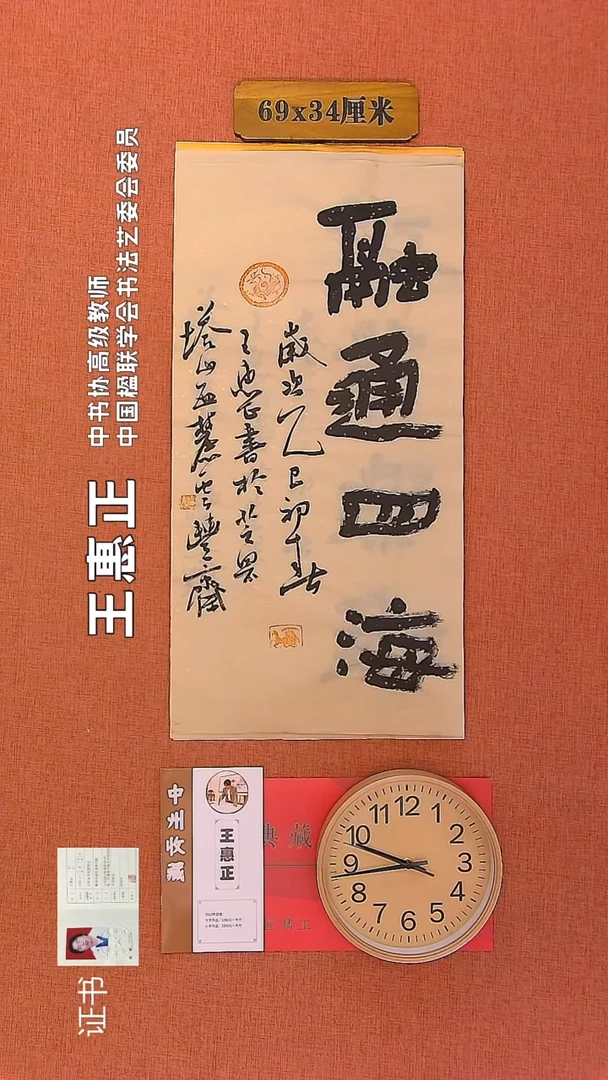 69x34厘米
融通四海
歲次乙巳初春
王惠正書於
塔山
中书协高级教师
中国楹联学会书法艺委会委员
王惠正
王惠正
典藏
精工
12
1
2
3
4
5
6
7
8
9
10
11
证书